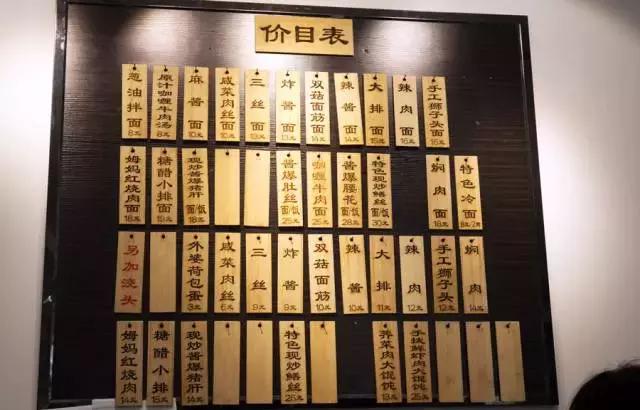 价目表
葱油拌面 8元
原汁咖喱牛肉汤 8元
麻酱面 10元
咸菜肉丝面 10元
三丝面 13元
炸酱面 13元
双菇面筋面 14元
辣酱面 14元
大排面 15元
辣肉面 16元
手工狮子头面 16元
姆妈红烧肉面 18元
糖醋小排面 19元
现炒酱爆猪肝面/饭 18元
酱爆肚丝面/饭 25元
咖喱牛肉面 25元
酱爆腰花面/饭 28元
特色现炒鳝丝面/饭 30元
焖肉面 18元
特色冷面
另加浇头
外婆荷包蛋 3元
咸菜肉丝 6元
三丝 9元
炸酱 9元
双菇面筋 10元
辣酱 10元
大排 11元
辣肉 12元
手工狮子头 12元
焖肉 14元
姆妈红烧肉 14元
糖醋小排 15元
现炒酱爆猪肝 14元
特色现炒鳝丝 26元
荠菜肉大馄饨 13元
手拔鲜虾肉大馄饨 25元